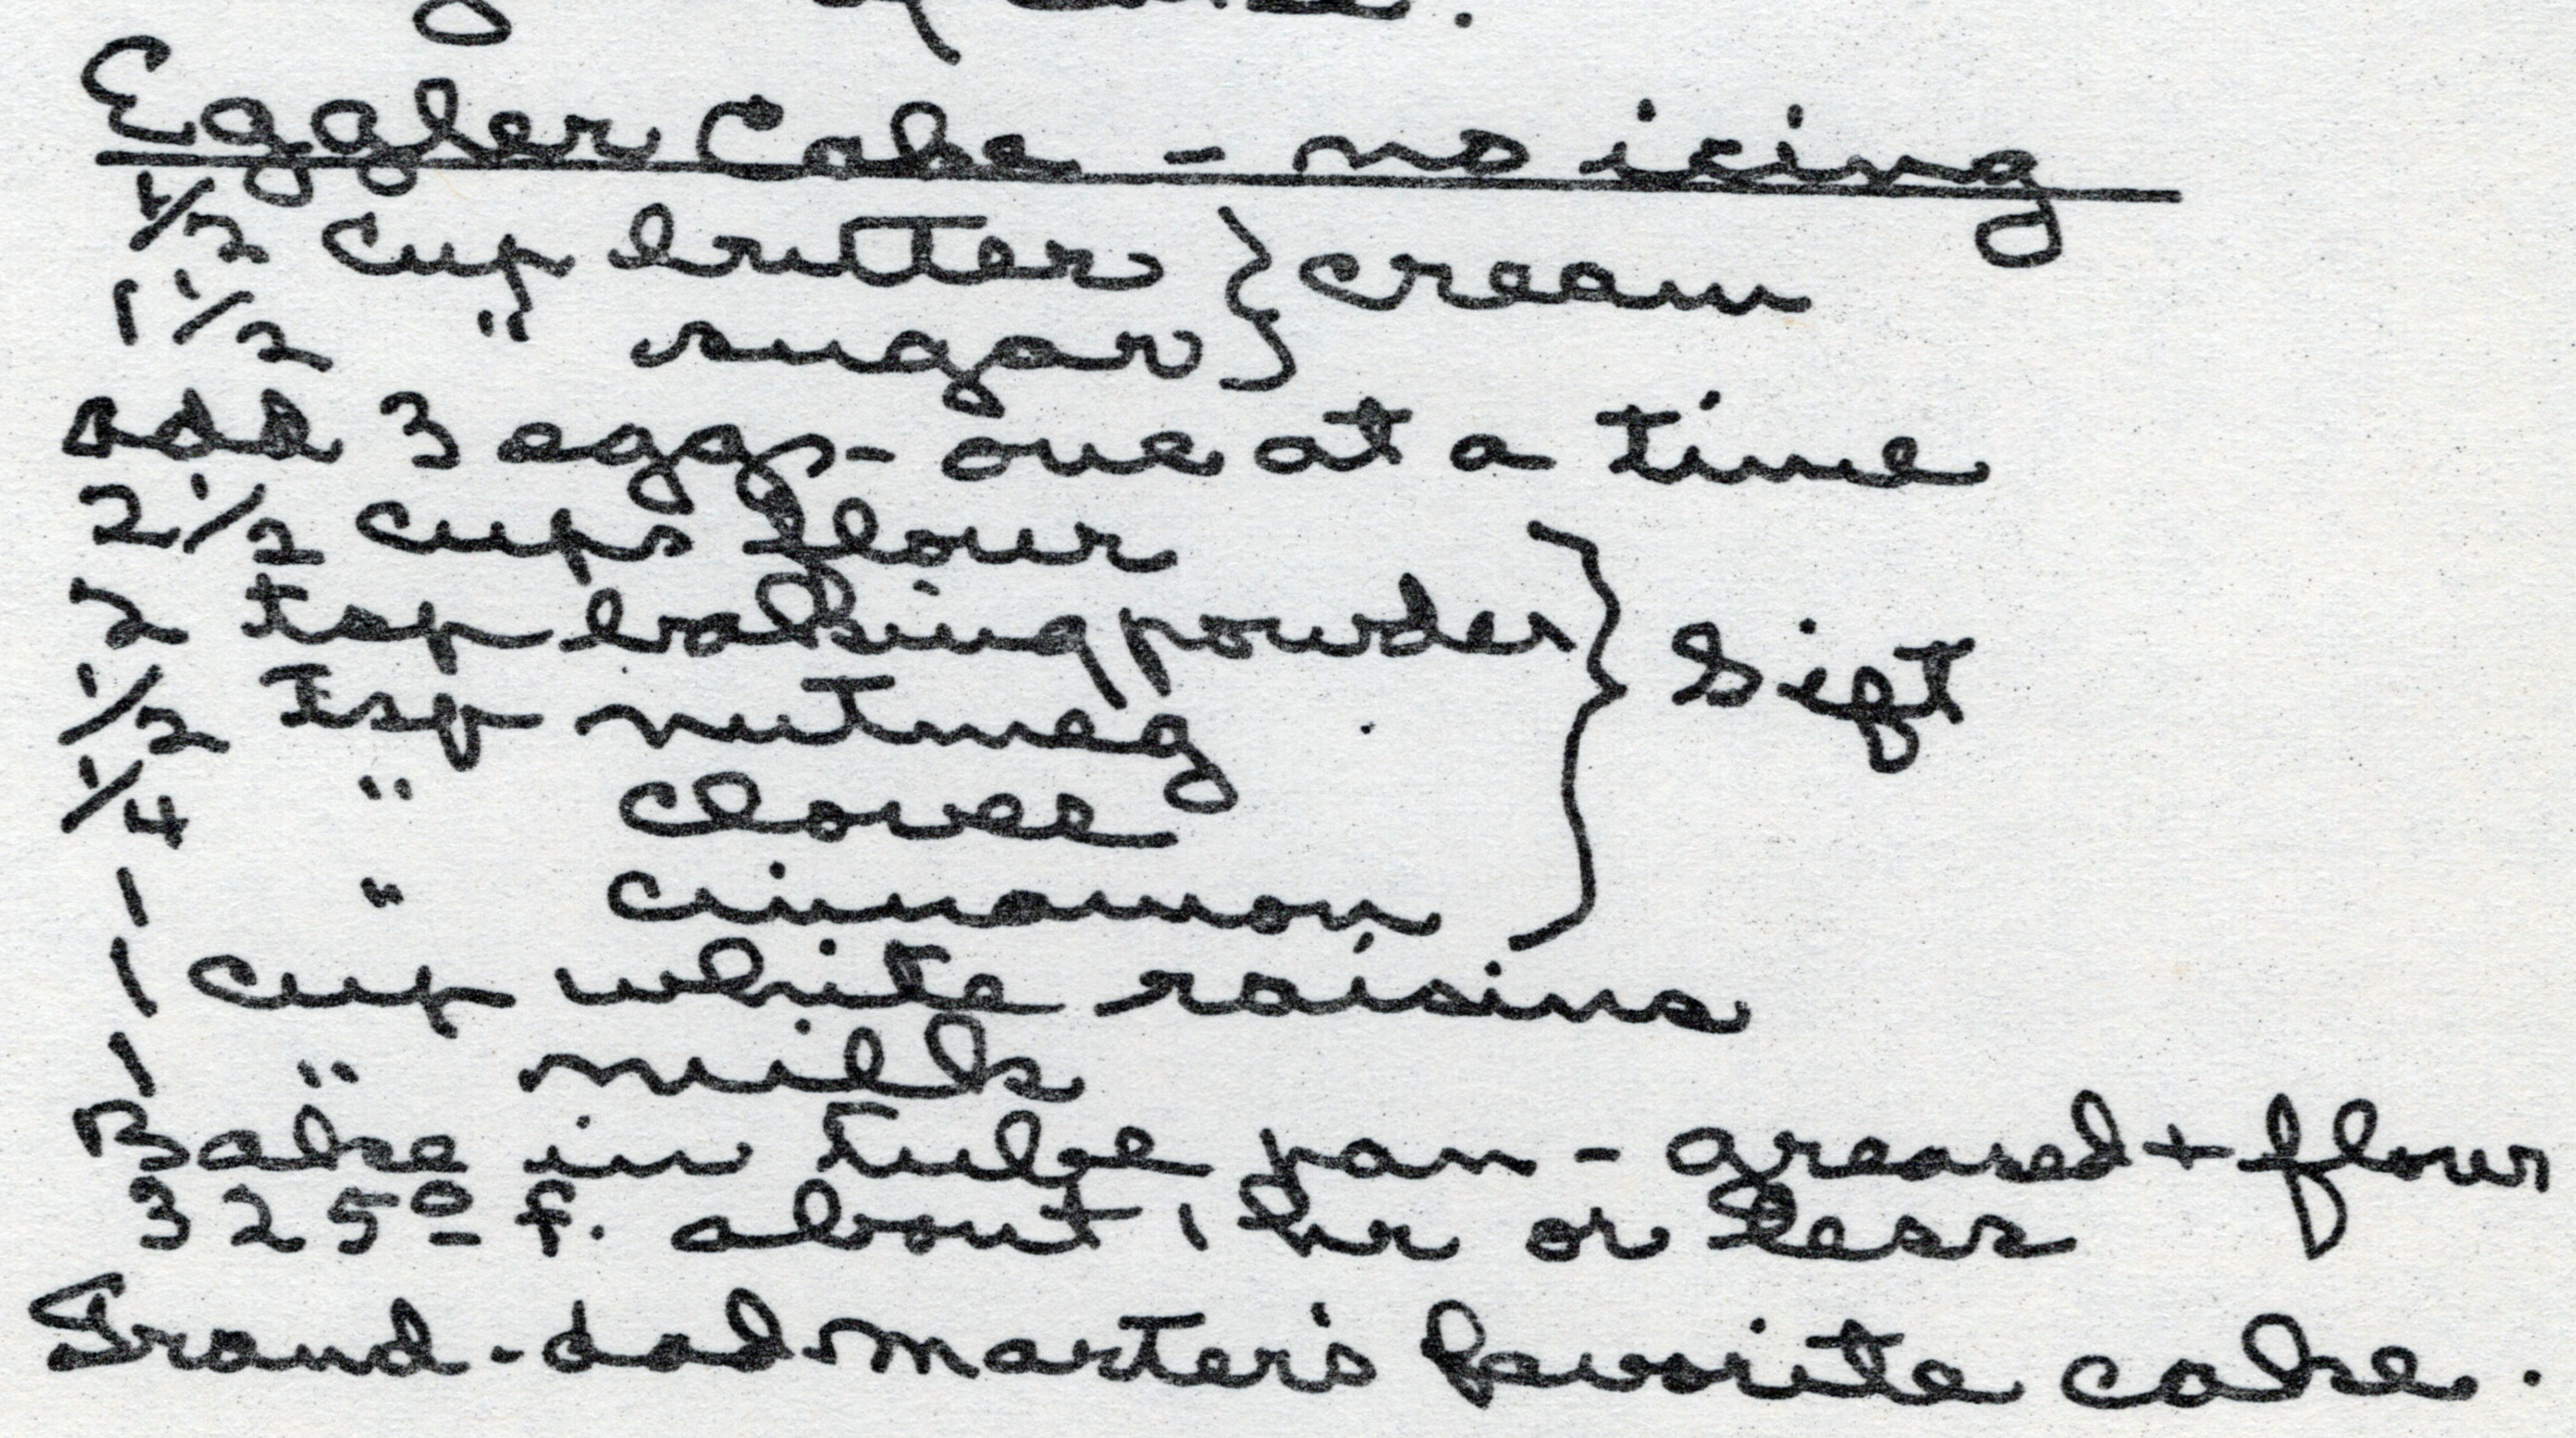 Eggler Cake - no icing
1/2 cup butter } cream
1 1/2 " sugar
add 3 eggs - one at a time
2 1/2 cups flour
2 tsp baking powder } Sift
1/2 tsp nutmeg
1/4 " cloves
1 " cinnamon
1 cup white raisins
1 " milk
Bake in tube pan - greased + flour
325º f. about 1 hr or less
Grand-dad Marter's favorite cake.